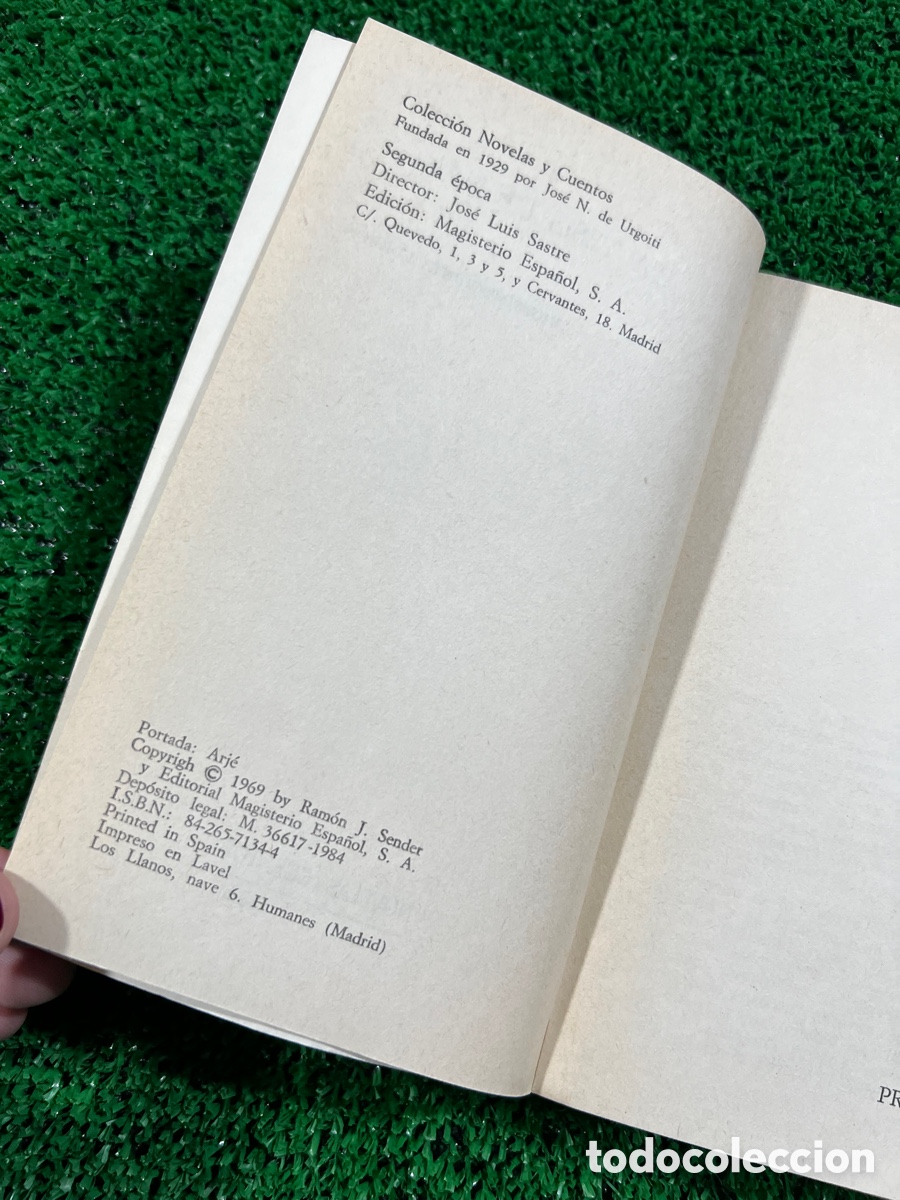 Colección Novelas y Cuentos
Fundada en 1929 por José N. de Urgoiti
Segunda época
Director: José Luis Sastre
Edición: Magisterio Español, S. A.
C/. Quevedo, 1, 3 y 5, y Cervantes, 18. Madrid
Portada: Arjé
Copyrigh © 1969 by Ramón J. Sender
y Editorial Magisterio Español, S. A.
Depósito legal: M. 36617-1984
I.S.B.N.: 84-265-7134-4
Printed in Spain
Impreso en Lavel
Los Llanos, nave 6. Humanes (Madrid)
PR
todocoleccion